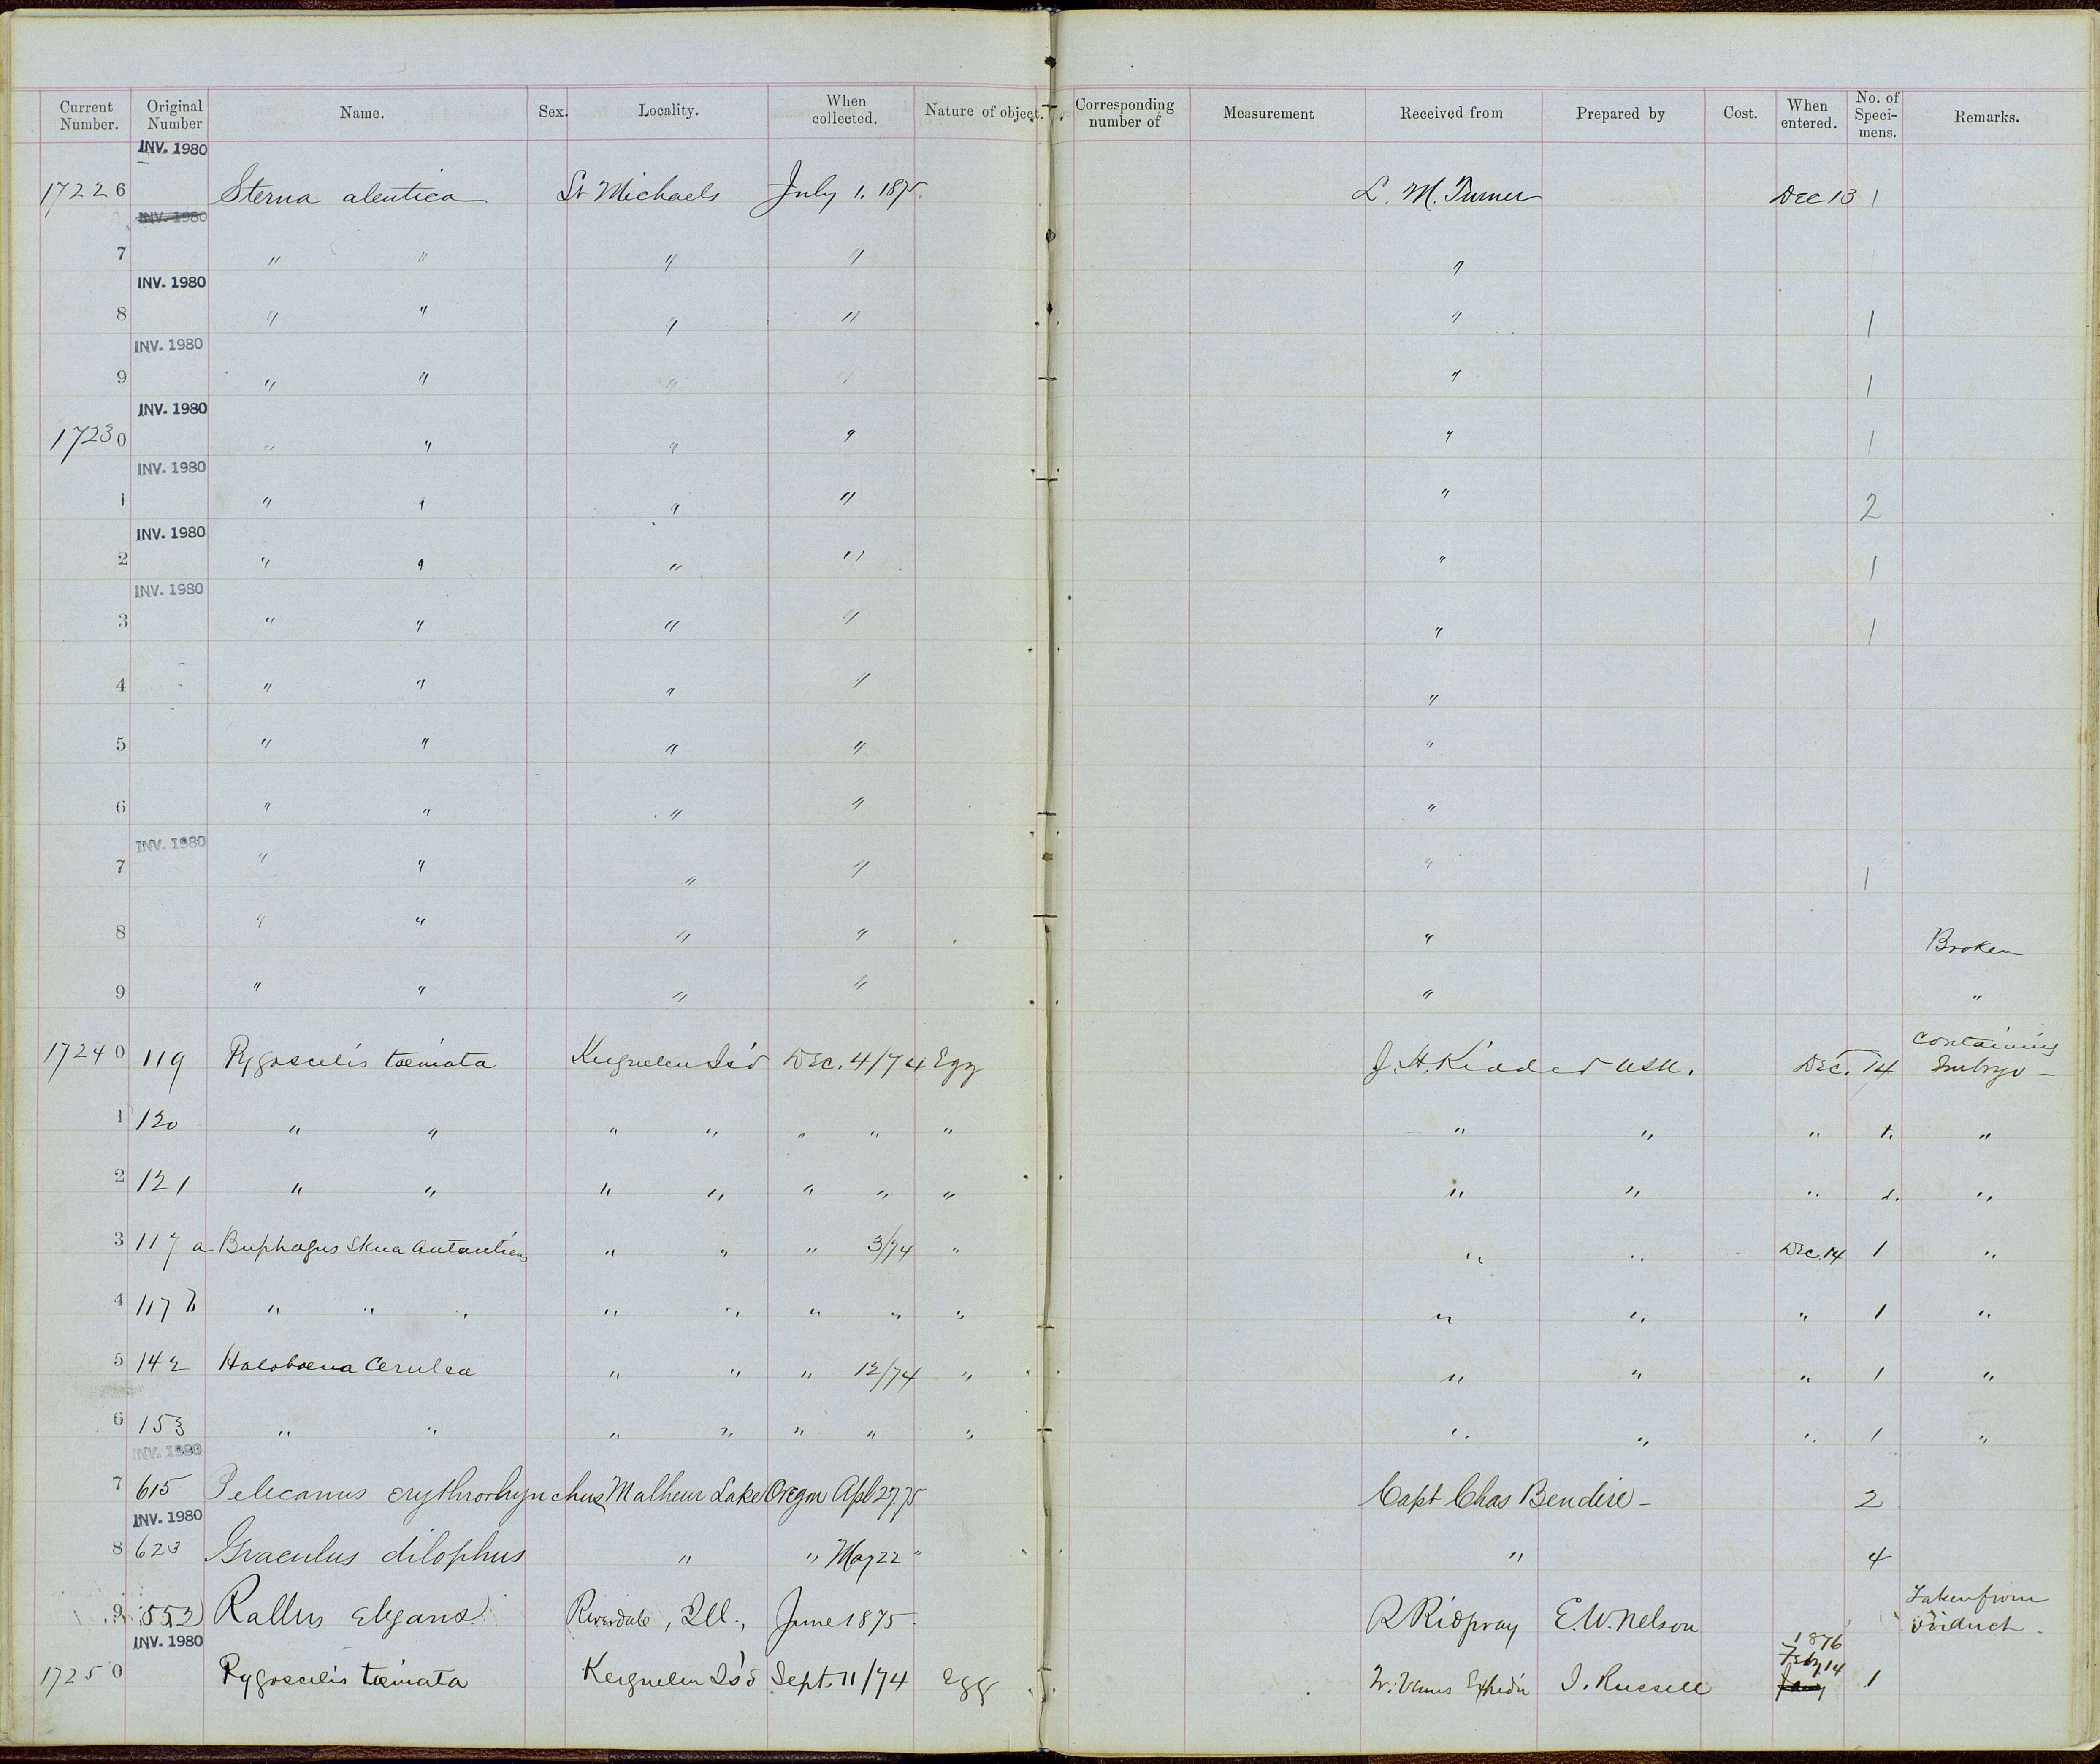 Current Number. Original Number Name. Sex. Locality. When collected. Nature of object. Corresponding number of Measurement Received from Prepared by Cost. When entered. No. of Speci-mens. Remarks.
INV. 1980
17226 Sterna aleutica St Michaels July 1. 1875. L. M. Turner Dec 13 1
INV. 1980
7 " " " " "
INV. 1980
8 " " " " " 1
INV. 1980
9 " " " " " 1
INV. 1980
17230 " " " " " 1
INV. 1980
1 " " " " " 2
INV. 1980
2 " " " " " 1
INV. 1980
3 " " " " " 1
4 " " " " "
5 " " " " "
6 " " " " "
INV. 1980
7 " " " " " 1
8 " " " " " Broken
9 " " " " " "
17240 119 Pygoscelis taeniata Kerguelen Is'd Dec. 4/74 Egg J. H. Kidder USN. Dec. 14 containing Embryo —
1 120 " " " " " " " " " " 1. "
2 121 " " " " " " " " " " 1. "
3 117 a Buphagus Skua antarcticus " " " 3/74 " " " Dec. 14 1 "
4 117 b " " " " " " " " " " " 1 "
5 142 Halobaena Cerulea " " " 12/74 " " " " 1 "
6 153 " " " " " " " " " " 1 "
INV. 1980
7 615 Pelecanus erythrorhynchus Malheur Lake Oregon Apl 27. 75 Capt Chas Bendire — 2
INV. 1980
8 623 Graculus dilophus " " May 22 " " 4
9 552) Rallus elegans Riverdale, Ill., June 1875. R Ridgway E. W. Nelson Taken from oviduct.
INV. 1980
17250 Pygoscelis taeniata Kerguelen Is'd Sept. 11/74 Egg Tr. Venus Exped'n I. Russell 1876 Feby 14 1